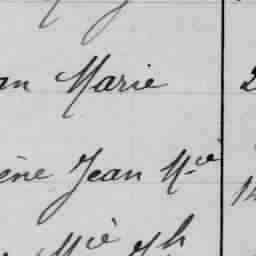 an Marie 2
ène Jean Mie
Mie Jh